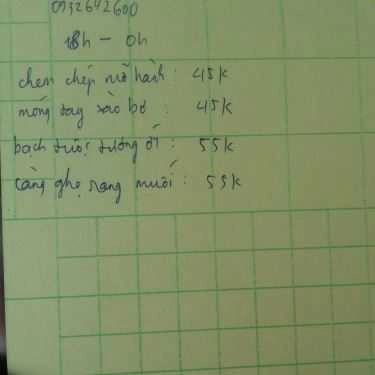 0932642600
18h - 0h
chem chép mỡ hành : 45k
móng tay xào bơ : 45k
bạch tuột tướng ớt : 55k
càng ghẹ rang muối : 55k